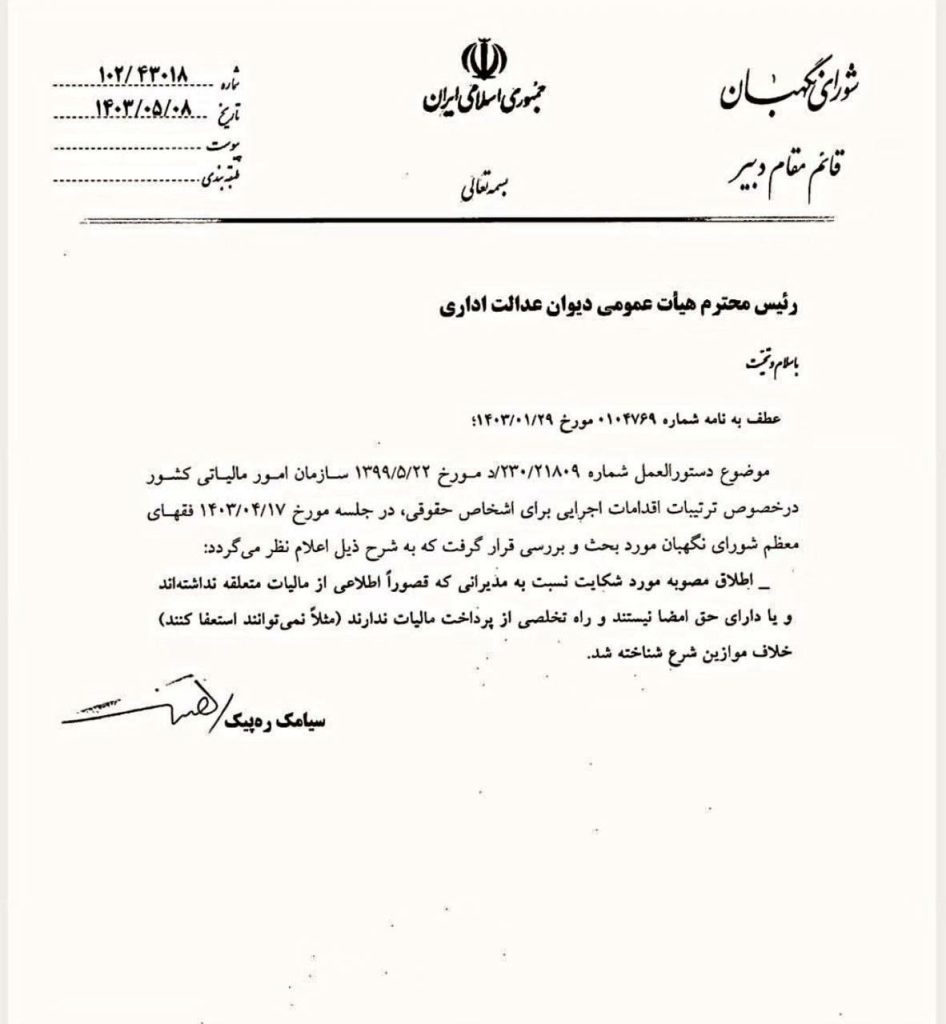 شورای نگهبان
قائم مقام دبیر
جمهوری اسلامی ایران
بسمه‌تعالی
شماره ۱۰۲/۴۳۰۱۸
تاریخ ۱۴۰۳/۰۵/۰۸
پیوست
طبقه‌بندی
رئیس محترم هیأت عمومی دیوان عدالت اداری
باسلام و تحیت
عطف به نامه شماره ۰۱۰۴۷۶۹ مورخ ۱۴۰۳/۰۱/۲۹؛
موضوع دستورالعمل شماره ۲۳۰/۲۱۸۰۹/د مورخ ۱۳۹۹/۵/۲۲ سازمان امور مالیاتی کشور
درخصوص ترتیبات اقدامات اجرایی برای اشخاص حقوقی، در جلسه مورخ ۱۴۰۳/۰۴/۱۷ فقهای
معظم شورای نگهبان مورد بحث و بررسی قرار گرفت که به شرح ذیل اعلام نظر می‌گردد:
_ اطلاق مصوبه مورد شکایت نسبت به مدیرانی که قصوراً اطلاعی از مالیات متعلقه نداشته‌اند
و یا دارای حق امضا نیستند و راه تخلصی از پرداخت مالیات ندارند (مثلاً نمی‌توانند استعفا کنند)
خلاف موازین شرع شناخته شد.
سیامک ره‌پیک